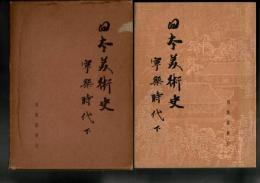 日本美術史
寧楽時代 下
日本美術史
寧楽時代 下